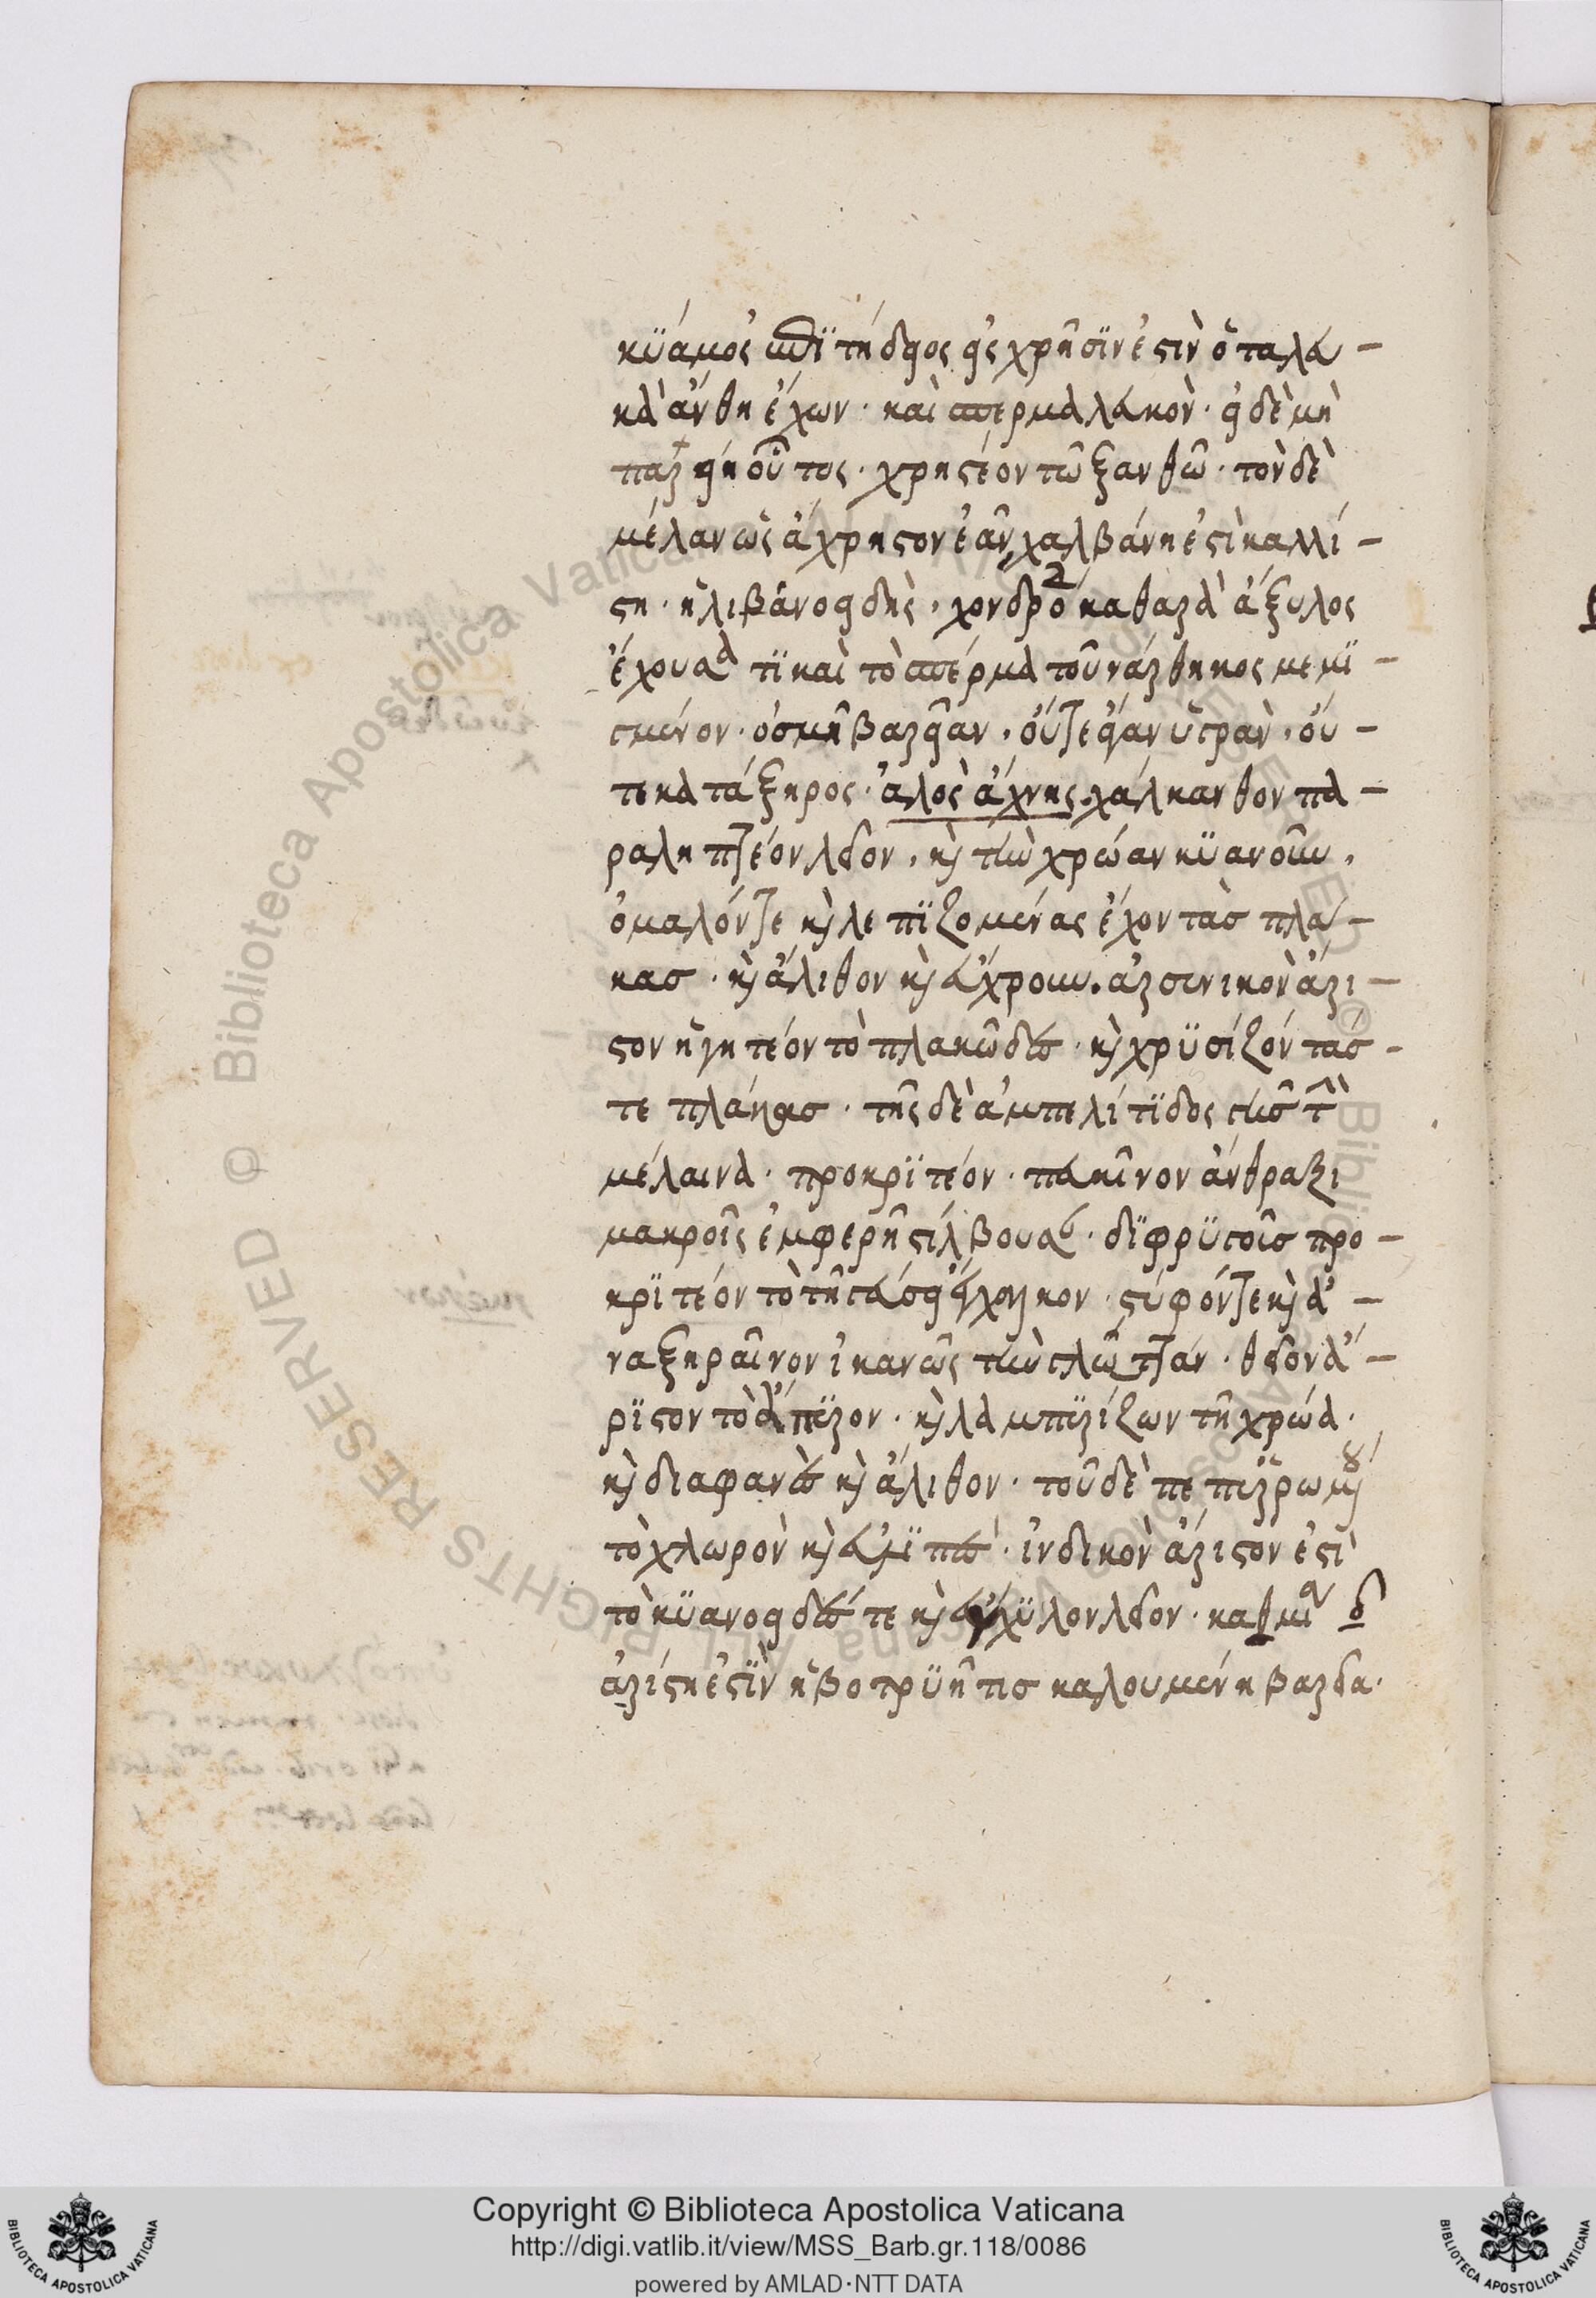 κϋάμος ἐπϊτήδειος εἰς χρῆσϊν ἐστὶν ὅ τα λευ –
κὰ ἄνθη ἔχων · καὶ σπέρμα λευκὸν · εἰ δὲ μὴ
παρείη οὗτος · χρηστέον τῶ ξανθῶ · τὸν δὲ
μέλαν ὡς ἄχρηστον ἐᾶν, χαλβάνη ἐστὶ καλλί –
στη · ἡ λιβανοειδὴς · χονδρο καθαρὰ ἄξυλος
ἔχουσα τϊ καὶ τὸ σπέρμα τοῦ νάρθηκος μεμϊ –
γμένον · ὀσμῇ βαρεῖαν · οὔτε ἄγαν ὑγρὰν · οὔ –
τε κατάξηρος · ἁλὸς ἄχνης · χάλκανθον πα –
ραληπτέον λεῖον · καὶ τὴν χρόαν κϋανοῦν ·
ὁμαλόν τε καὶ λεπϊζομένας ἔχον τὰσ πλά –
κασ · καὶ ἄλιθον καὶ εὔχρουν · ἀρσενικὸν ἄρι –
στον ἡγητέον τὸ πλακῶδεσ · καὶ χρϋσίζόν τάσ –
τε πλάκασ · τῆς δὲ ἀμπελίτϊδος γῆσ τὴν
μέλαινα · προκρϊτέον · πευκῖνον ἄνθραξι
μακροῖς ἐμφερῆ στίλβουσα · δϊφρϋγοῖσ προ –
κρϊτέον τὸ τῆ γεύσει χαλκον · στύφόν τε καὶ ἀ –
ναξηραῖνον ἱκανῶς τὴν γλῶτταν · θεῖον ἄ –
ρϊστον τὸ ἄπϋρον · καὶ λαμπϋρίζων τῆ χρόα ·
καὶ διαφανὲσ καὶ ἄλιθον · τοῦ δὲ πεπϋρωμένου
τὸ χλωρὸν καὶ εὐλϊπὲσ · ἰνδικὸν ἄριστον ἐστὶ
τὸ κϋανοειδέσ τε καὶ εὔχϋλον λεῖον · καθμία δ
ἀρίστη ἐστϊν ἡ βοτρϋῆτισ καλουμένη βαρεῖα ·
Copyright © Biblioteca Apostolica Vaticana
http://digi.vatlib.it/view/MSS_Barb.gr.118/0086
powered by AMLAD·NTT DATA